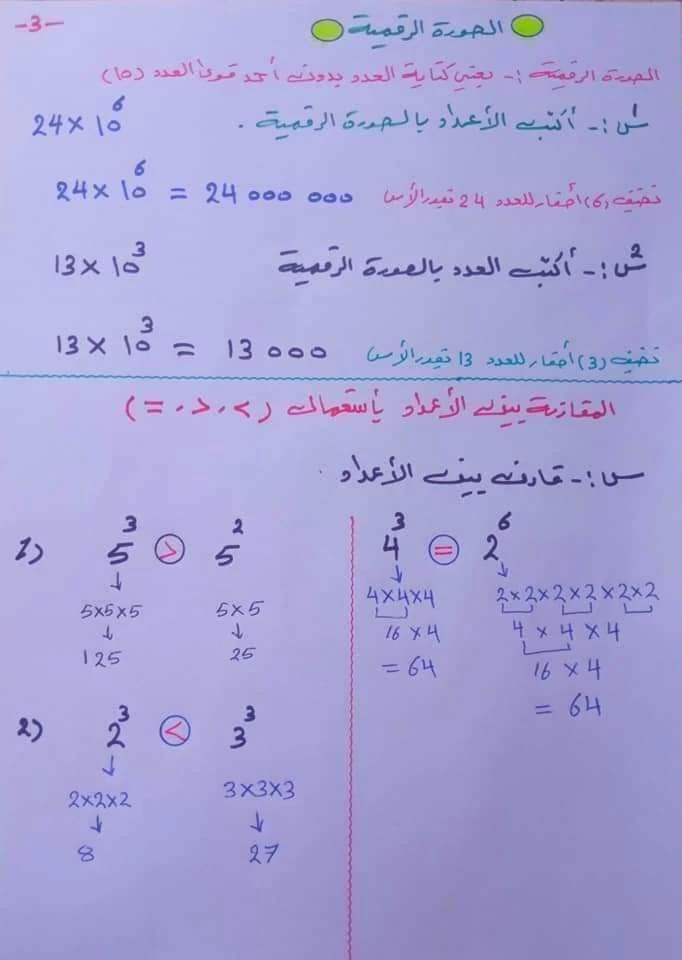 -3-
الصورة الرقمية
الصورة الرقمية :- يعني كتابة العدد بدون أحد قوى العدد (10)
س1:- أكتب الأعداد بالصورة الرقمية . 24 × 10⁶
24 × 10⁶ = 24 000 000 نضيف (6) أصفار للعدد 24 بقدر الأس
س2:- أكتب العدد بالصورة الرقمية 13 × 10³
13 × 10³ = 13 000 نضيف (3) أصفار للعدد 13 بقدر الأس
المقارنة بين الأعداد بأستعمال (= , < , >)
س:- قارن بين الأعداد .
1) 5³ > 5²
↓
5×5×5 5×5
↓ ↓
125 25
2) 2³ < 3³
↓
2×2×2 3×3×3
↓ ↓
8 27
4³ = 2⁶
↓ ↓
4×4×4 2×2×2×2×2×2
16 × 4 4 × 4 × 4
= 64 16 × 4
= 64